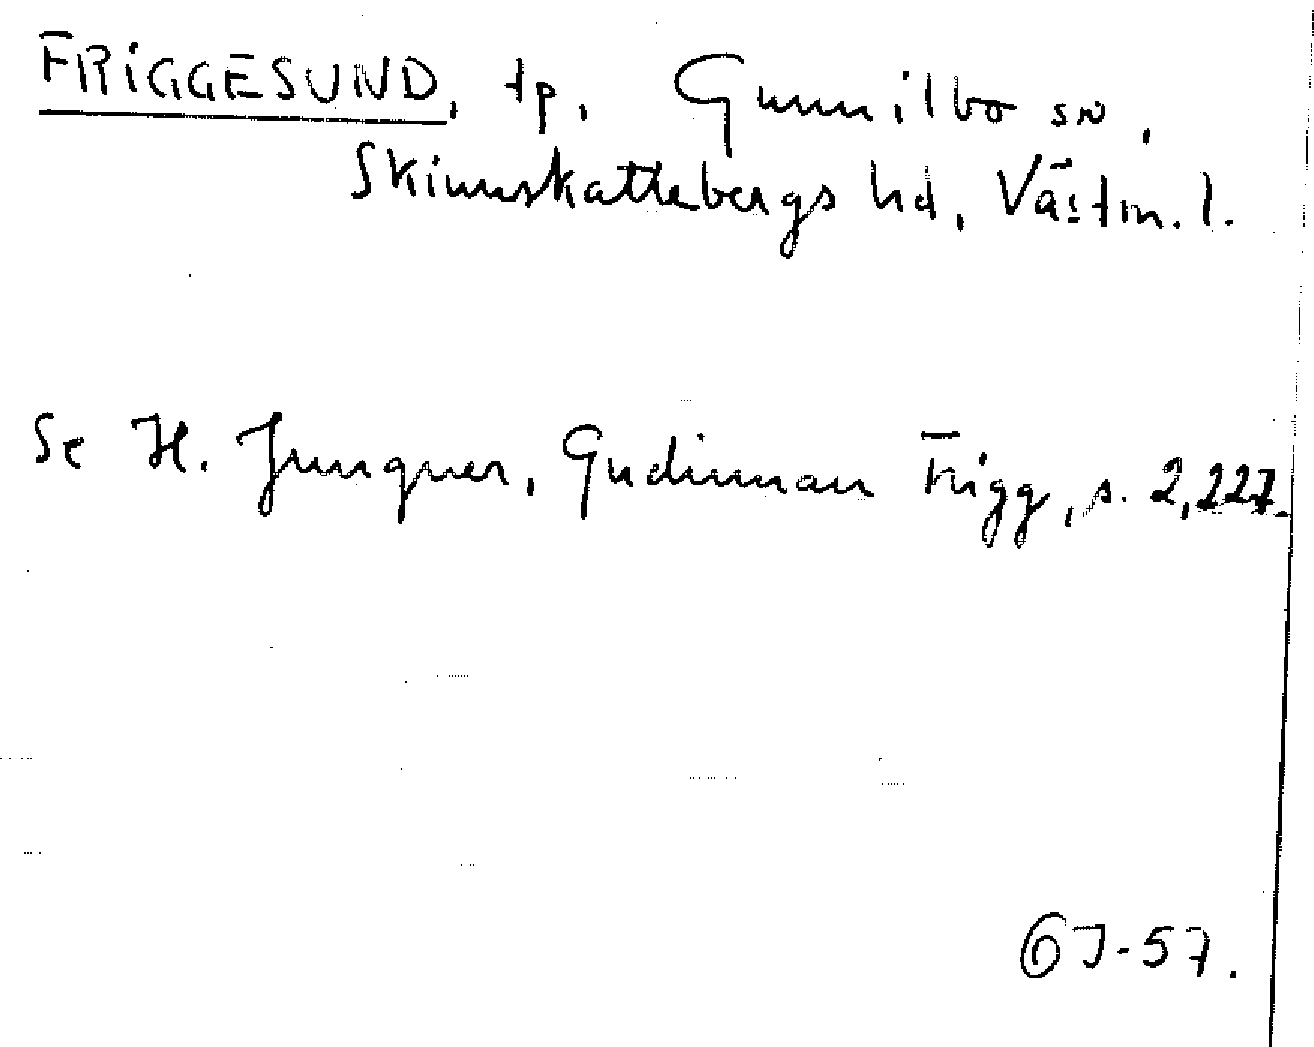 FRIGGESUND, tp, Gunnilbo sn,
Skinnskattebergs hd, Västm. l.
Se H. Jungner, Gudinnan Frigg, s. 2,227.
GJ-57.